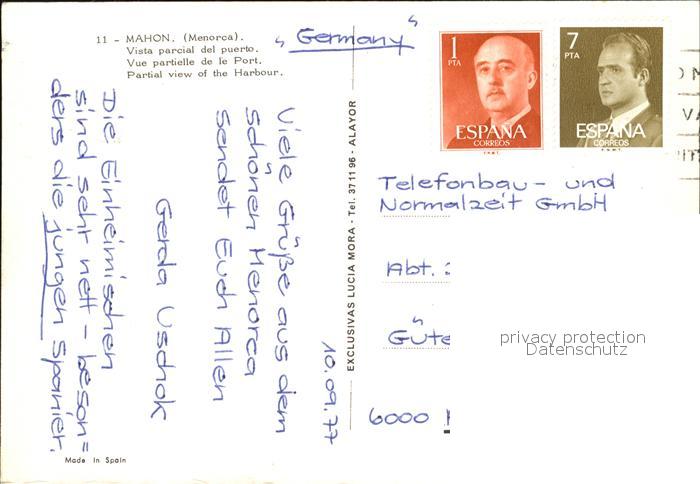 11 - MAHON. (Menorca).
Vista parcial del puerto.
Vue partielle de le Port.
Partial view of the Harbour.
"Germany"
1
PTA
ESPAÑA
CORREOS
F.N.M.T.
7
PTA
ESPAÑA
CORREOS
F.N.M.T.
10.09.77
Viele Grüße aus dem
schönen Menorca
sendet Euch Allen
Gerda Uschok
Die Einheimischen
sind sehr nett - beson=
ders die jungen Spanier.
EXCLUSIVAS LUCIA MORA - Tel. 37 11 96 - ALAYOR
Telefonbau - und
Normalzeit GmbH
Abt. :
Güte
6000
privacy protection
Datenschutz
Made in Spain